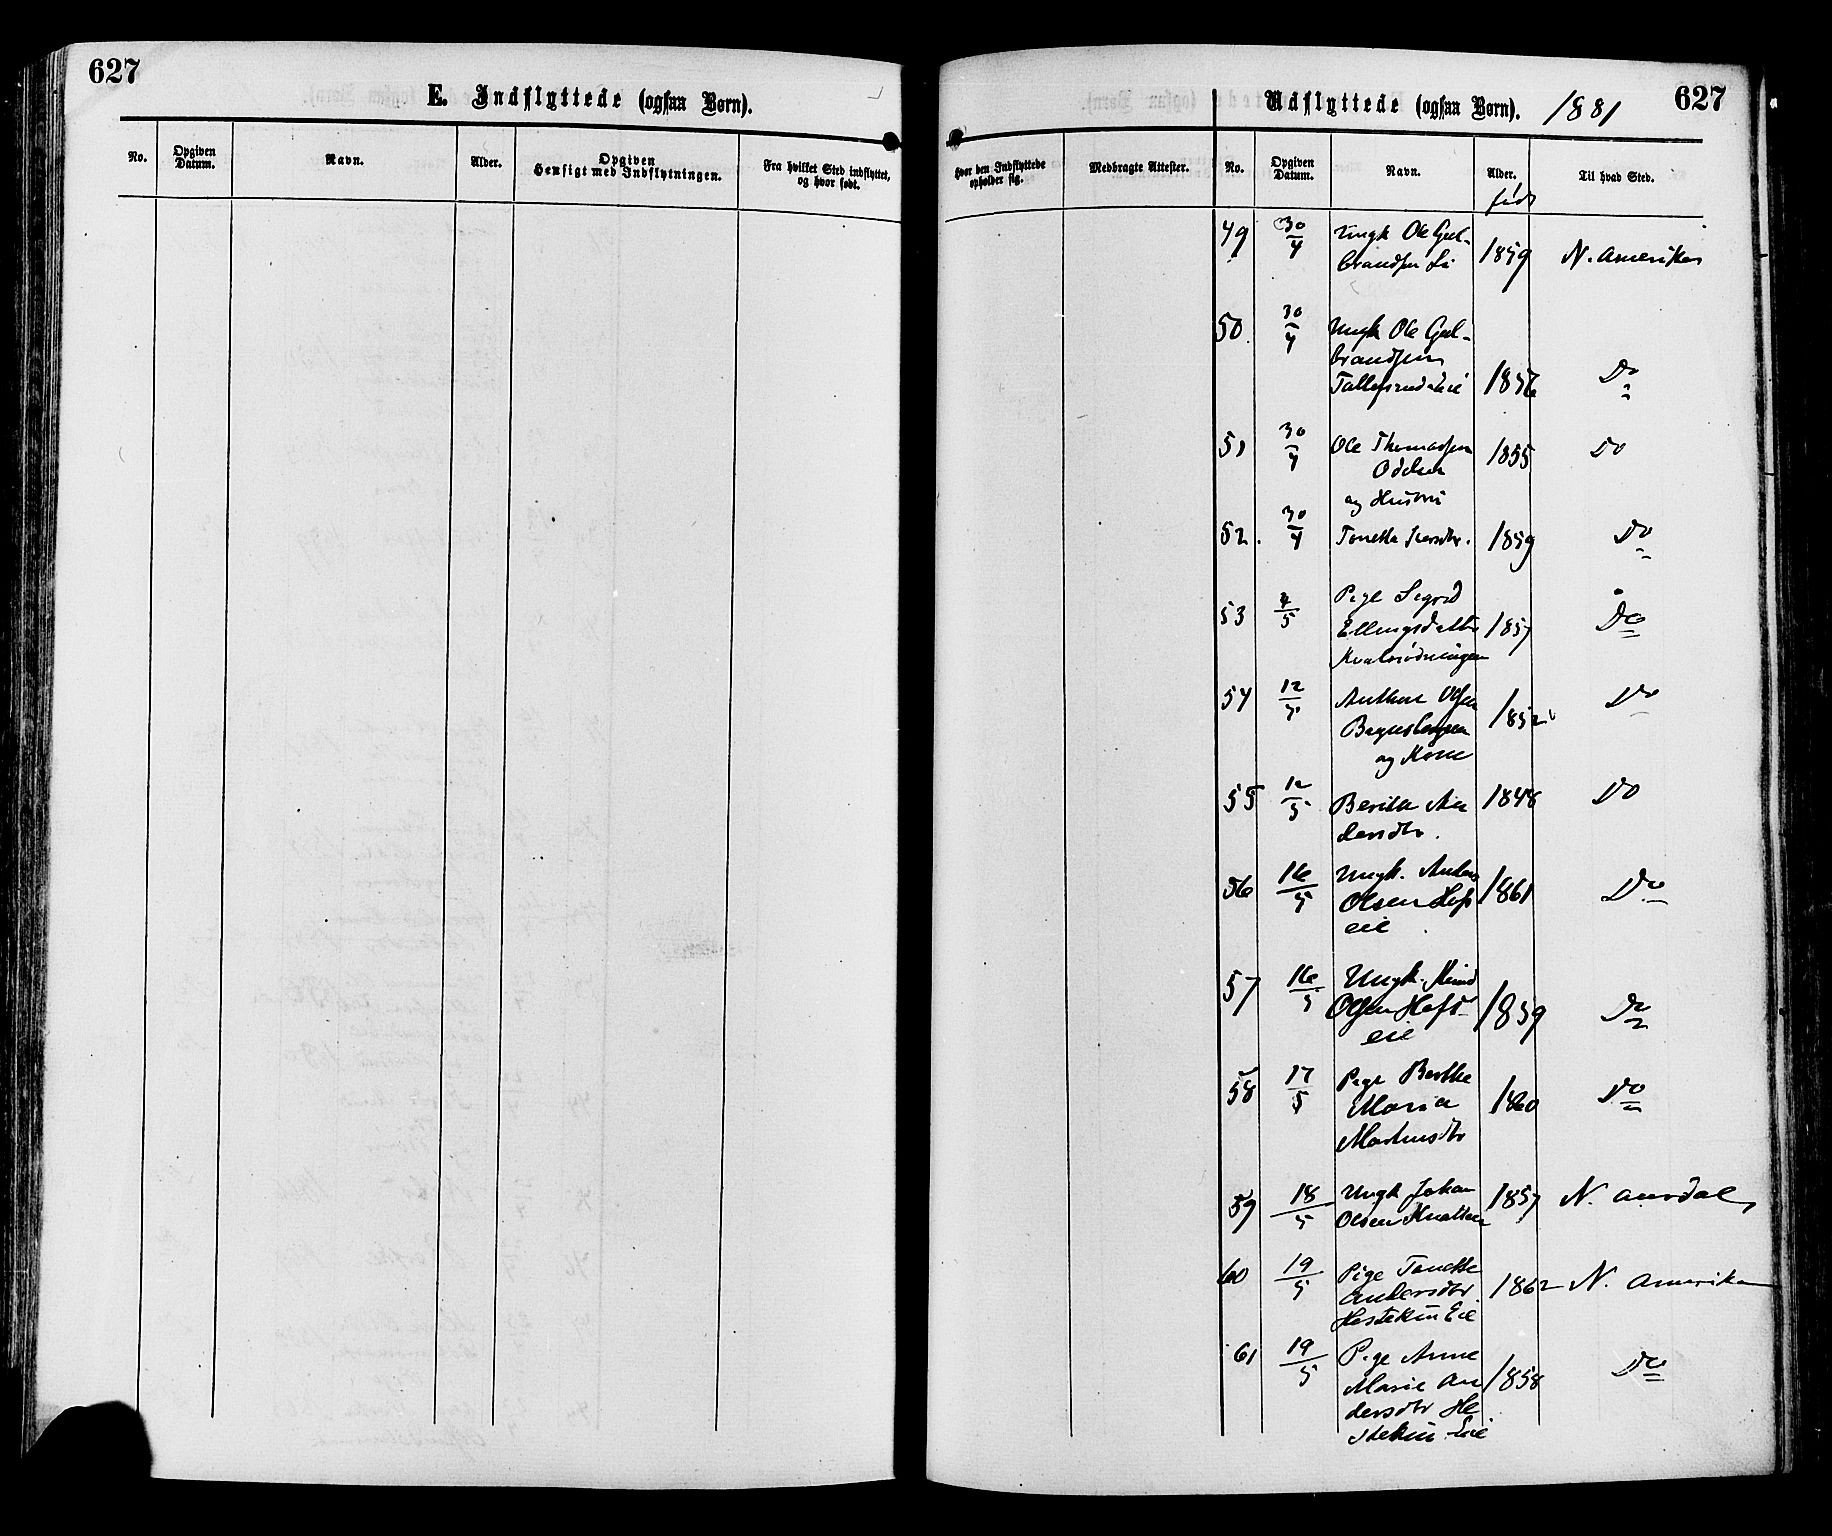 627
E. Indflyttede (ogsaa Børn).
No.
Opgiven Datum.
Navn.
Alder.
Opgiven Hensigt med Indflytningen.
Fra hvilket Sted indflyttet, og hvor født.
Hvor den Indflyttede opholder sig.
Medbragte Attester.
Udflyttede (ogsaa Børn). 1881
627
No.
Opgiven Datum.
Navn.
Alder.
født
Til hvad Sted.
49 30/4 Ungk Ole Gul-
brandsen Li 1859 N. Amerika
50. 30/4 Ungk Ole Gul-
brandsen
1856 Do
51 30/4 Ole Thomassen 1855 Do
og Hustru
52. 30/4 Tonetta Iversdtr. 1859 Do
53 4/5 Pige Sigrid
Ellingsdatter 1857 Do
54 12/5 Anthon Olsen 1852 Do
og Kone
55 12/5 Berith An 1848 Do
dersdtr.
56 16/5 Ungk. Anders
Olsen Hefs 1861 Do
eie
57 16/5 Ungk. Knud
Olsen Hefs- 1859 Do
eie
58 17/5 Pige Berthe
Maria 1860 Do
Martinsdtr
59 18/5 Ungk Johan 1857 N. Aurdal
Olsen Knatten
60 19/5 Pige Tonette
Andersdtr 1862 N. Amerika
Hestekin Eie
61 19/5 Pige Anne
Marie An 1858 Do
dersdtr He
stekin Eie